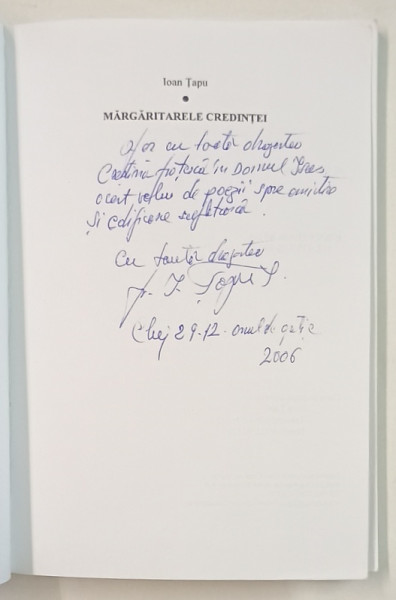 Ioan Țapu
MĂRGĂRITARELE CREDINȚEI
cu toată dragostea
Creștină frățească în Domnul Isus
acest volum de poezii spre amintire
și edificare sufletească.
Cu toată dragostea
Cluj 29-12- anul de grație
2006